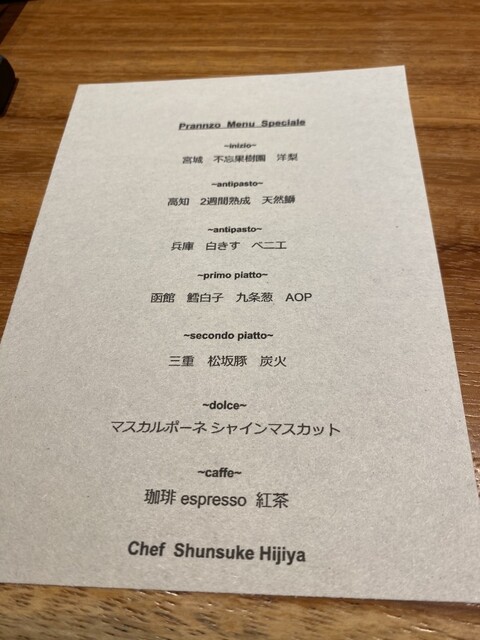 Prannzo Menu Speciale
~inizio~
宮城 不忘果樹園 洋梨
~antipasto~
高知 2週間熟成 天然鰤
~antipasto~
兵庫 白きす ベニエ
~primo piatto~
函館 鱈白子 九条葱 AOP
~secondo piatto~
三重 松坂豚 炭火
~dolce~
マスカルポーネ シャインマスカット
~caffe~
珈琲 espresso 紅茶
Chef Shunsuke Hijiya